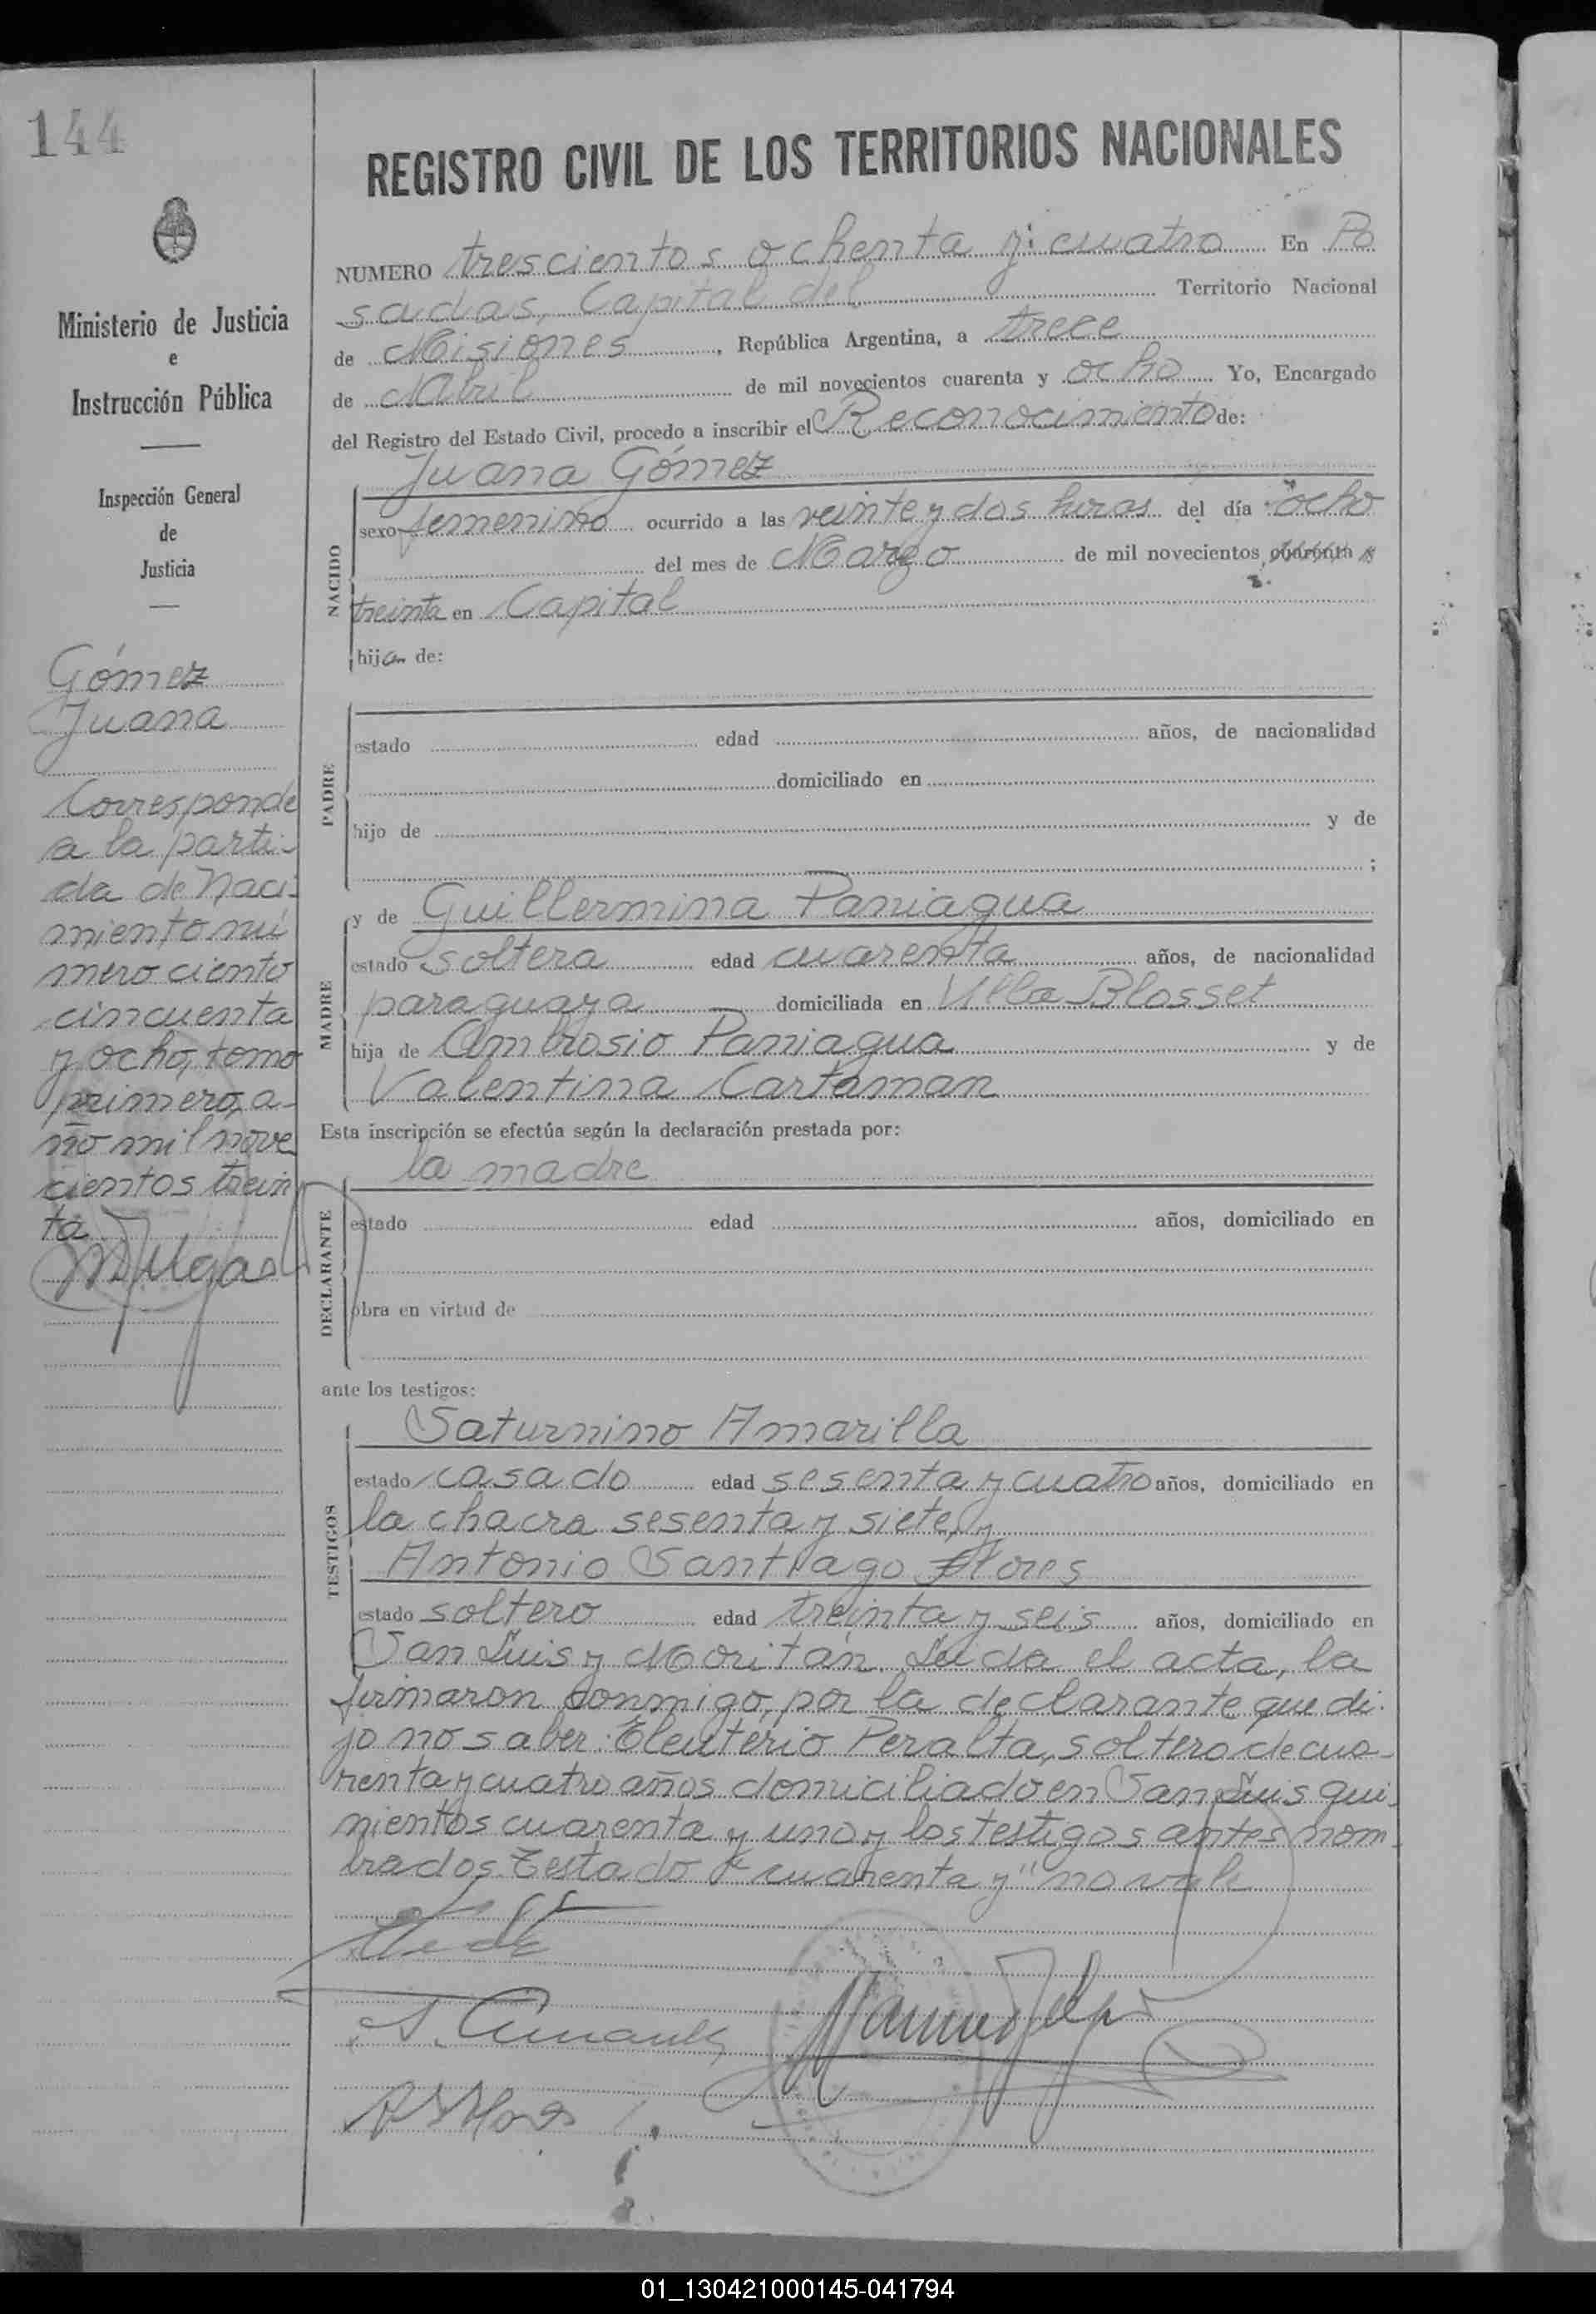 144
Ministerio de Justicia
e
Instrucción Pública
Inspección General
de
Justicia
Gómez
Juana
Corresponde
a la parti-
da de Naci-
miento nú
mero ciento
cincuenta
y ocho, tomo
primero, a-
ño mil nove
cientos trein
ta
REGISTRO CIVIL DE LOS TERRITORIOS NACIONALES
NUMERO trescientos ochenta y cuatro En Po
sadas, Capital del Territorio Nacional
de Misiones, República Argentina, a trece
de Abril de mil novecientos cuarenta y ocho Yo, Encargado
del Registro del Estado Civil, procedo a inscribir el Reconocimiento de:
Juana Gómez
NACIDO
sexo femenino ocurrido a las veinte y dos horas del día ocho
del mes de Marzo de mil novecientos cuarenta y
treinta en Capital
hija de:
PADRE
estado edad años, de nacionalidad
domiciliado en
hijo de y de
;
MADRE
y de Guillermina Paniagua
estado soltera edad cuarenta años, de nacionalidad
paraguaya domiciliada en Villa Blosset
hija de Ambrosio Paniagua y de
Valentina Cartaman
Esta inscripción se efectúa según la declaración prestada por:
la madre
DECLARANTE
estado edad años, domiciliado en
obra en virtud de
ante los testigos:
TESTIGOS
Saturnino Amarilla
estado casado edad sesenta y cuatro años, domiciliado en
la chacra sesenta y siete, y
Antonio Santiago Flores
estado soltero edad treinta y seis años, domiciliado en
San Luis y Moritán. Leida el acta, la
firmaron conmigo, por la declarante que di-
jo no saber: Eleuterio Peralta, soltero de cua-
renta y cuatro años domiciliado en San Luis qui-
nientos cuarenta y uno y los testigos antes nom-
brados. Testado "cuarenta y" no vale
01_130421000145-041794